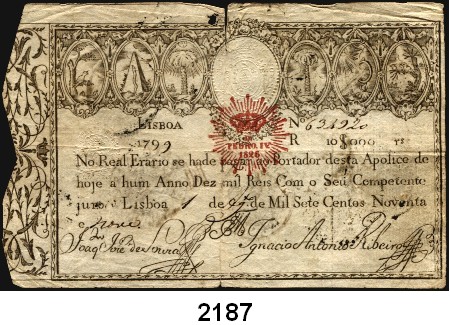 LISBOA Nº 631920
1799 R 10$000 rs
PEDRO. IV
1826
No Real Erário se hade pagar ao Portador desta Apolice de
hoje á hum Anno Dez mil Reis Com o Seu Competente
juro Lisboa 1 de de Mil Sete Centos Noventa
e nove
Joaqm Joze de Souza Ignacio Antonio Ribeiro
2187